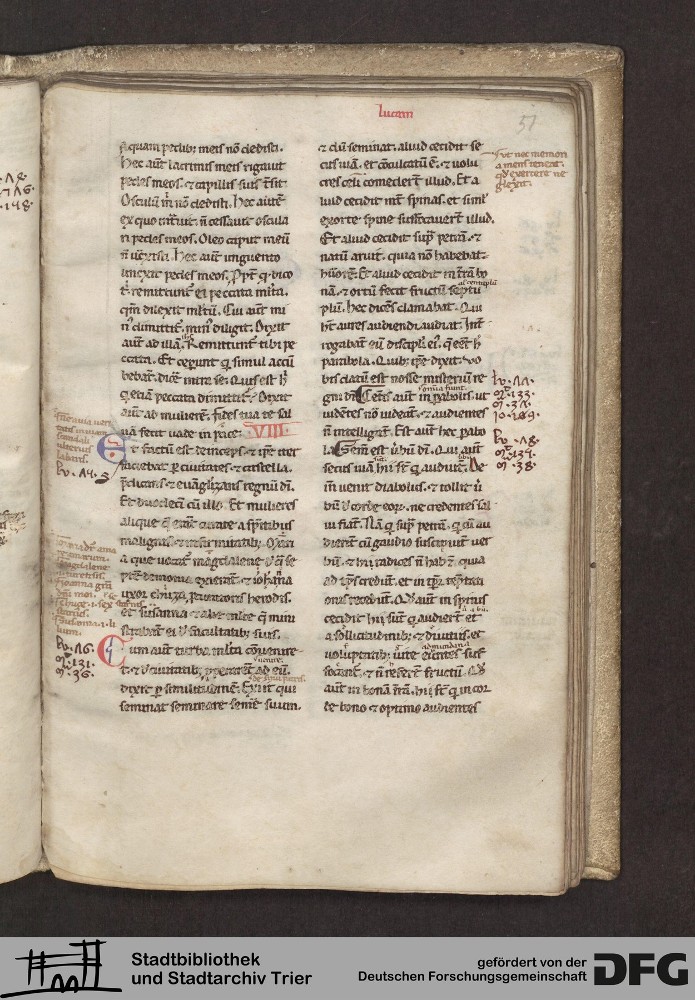 lucam
51
s. quam pedib; meis nō dedisti.
hec aūt lacrimis meis rigauit
pedes meos. ⁊ capillis suis t̄sit.
Osculū m̄ nō dedisti. hec autē
ex quo intᷓuit. n̄ cessauit oscula
ri pedes meos. Oleo caput meū
n̄ ūxisti. hec aūt unguento
unxit pedes meos. Ppt̄ qͣ dico
t̄. remittunt̄ ei peccata ml̄ta.
qm̄ dilexit ml̄tū. Cui aūt mi
n̄ dimittit̄. min̄ diligit. Dixit
aūt ad illā. Remittunt̄ tibi pe
ccata. Et ceperunt q̄ simul accū
bebāt. dic̄e intra se. Quis est h̄
q̄ etiā peccata dimittit. Dixit
aūt ad mulierē. fides tua te sal
uā fecit uade in pace. VIII
Et factū est deinceps. ⁊ ip̄e iter
faciebat p̄ ciuitates. ⁊ castella.
p̄dicans ⁊ euāgl̄izans regnū dī.
Et duodecī cū illo. Et mulieres
alique q̄ erant curate a spiritibus
malignis. ⁊ infirmitatib; Mari
a que uocat̄ magdalene d̄ q̄ se
ptē demonia exierant. ⁊ iohāna
uxor chuza. pcuratoris herodis.
et susanna ⁊ alie ml̄te q̄ mini
strabāt ei d̄ facultatib; suis.
Cum aūt turba ml̄ta cōuenire
t̄. ⁊ d̄ ciuitatib; pperarēt ad eū.
dixit p̄ similitudinē. Exiit qui
seminat seminare semē suum.
⁊ dū seminat. aliud cecidit se
cus uiā. et cōculcatū ē. ⁊ uolu
cres celi comedert̄ illud. Et a
liud cecidit int̄ spinas. et siml̄
exorte spine suffocauert̄ illud.
Et aliud cecidit sup̄ petrā. ⁊
natū aruit. quia nōn habebat
hūorē. Et aliud cecidit in t̄rā bo
nā. ⁊ ortū fecit fructū
centuplū
plū. hec dicēs clamabat. Qui
h̄t aures audiendi audiat. Int̄
rogabāt eū discipli eī. q̄ eēt h̄
parabola. Quib; ip̄e dixit. Vo
bis datū est nosse misteriū re
gni dī. Cet̄is aūt in pabolis. ut
uidētes nō uideāt. ⁊ audientes
n̄ intelligāt. Est aūt hec pabo
la. Semē est ūbū dī. Qui aūt
secus uiā hii st̄ q̄ audiūt. De
in uenit diabolus. ⁊ tollit ū
bū d̄ corde eoꝝ. ne credentes sal
ui fiāt. Nā q̄ sup̄ petrā. q̄ cū au
dierīt cū gaudio suscipiūt uer
bū. ⁊ hii radices n̄ hab̄t. quia
ad tp̄s credūt. et in tp̄r temptati
onis recedūt. Qd̄ aūt in spinis
cecidit hii sūt q̄ audiert̄ et
a sollicitudinib; ⁊ diuitiis. et
uoluptatib; uite eūtes suf
focant̄. ⁊ n̄ refert̄ fructū. Qd̄
aūt in bonā t̄rā. hii st̄ q̄ in cor
de bono ⁊ optimo audientes
lv. 14.
lv. 16.
ṁ. 131.
ṁ. 36.
lv. 11.
ṁ. 133.
ṁ. 37.
io. 109.
lv. 18.
ṁ. 134.
ṁ. 38.
Stadtbibliothek
und Stadtarchiv Trier
gefördert von der
Deutschen Forschungsgemeinschaft
DFG